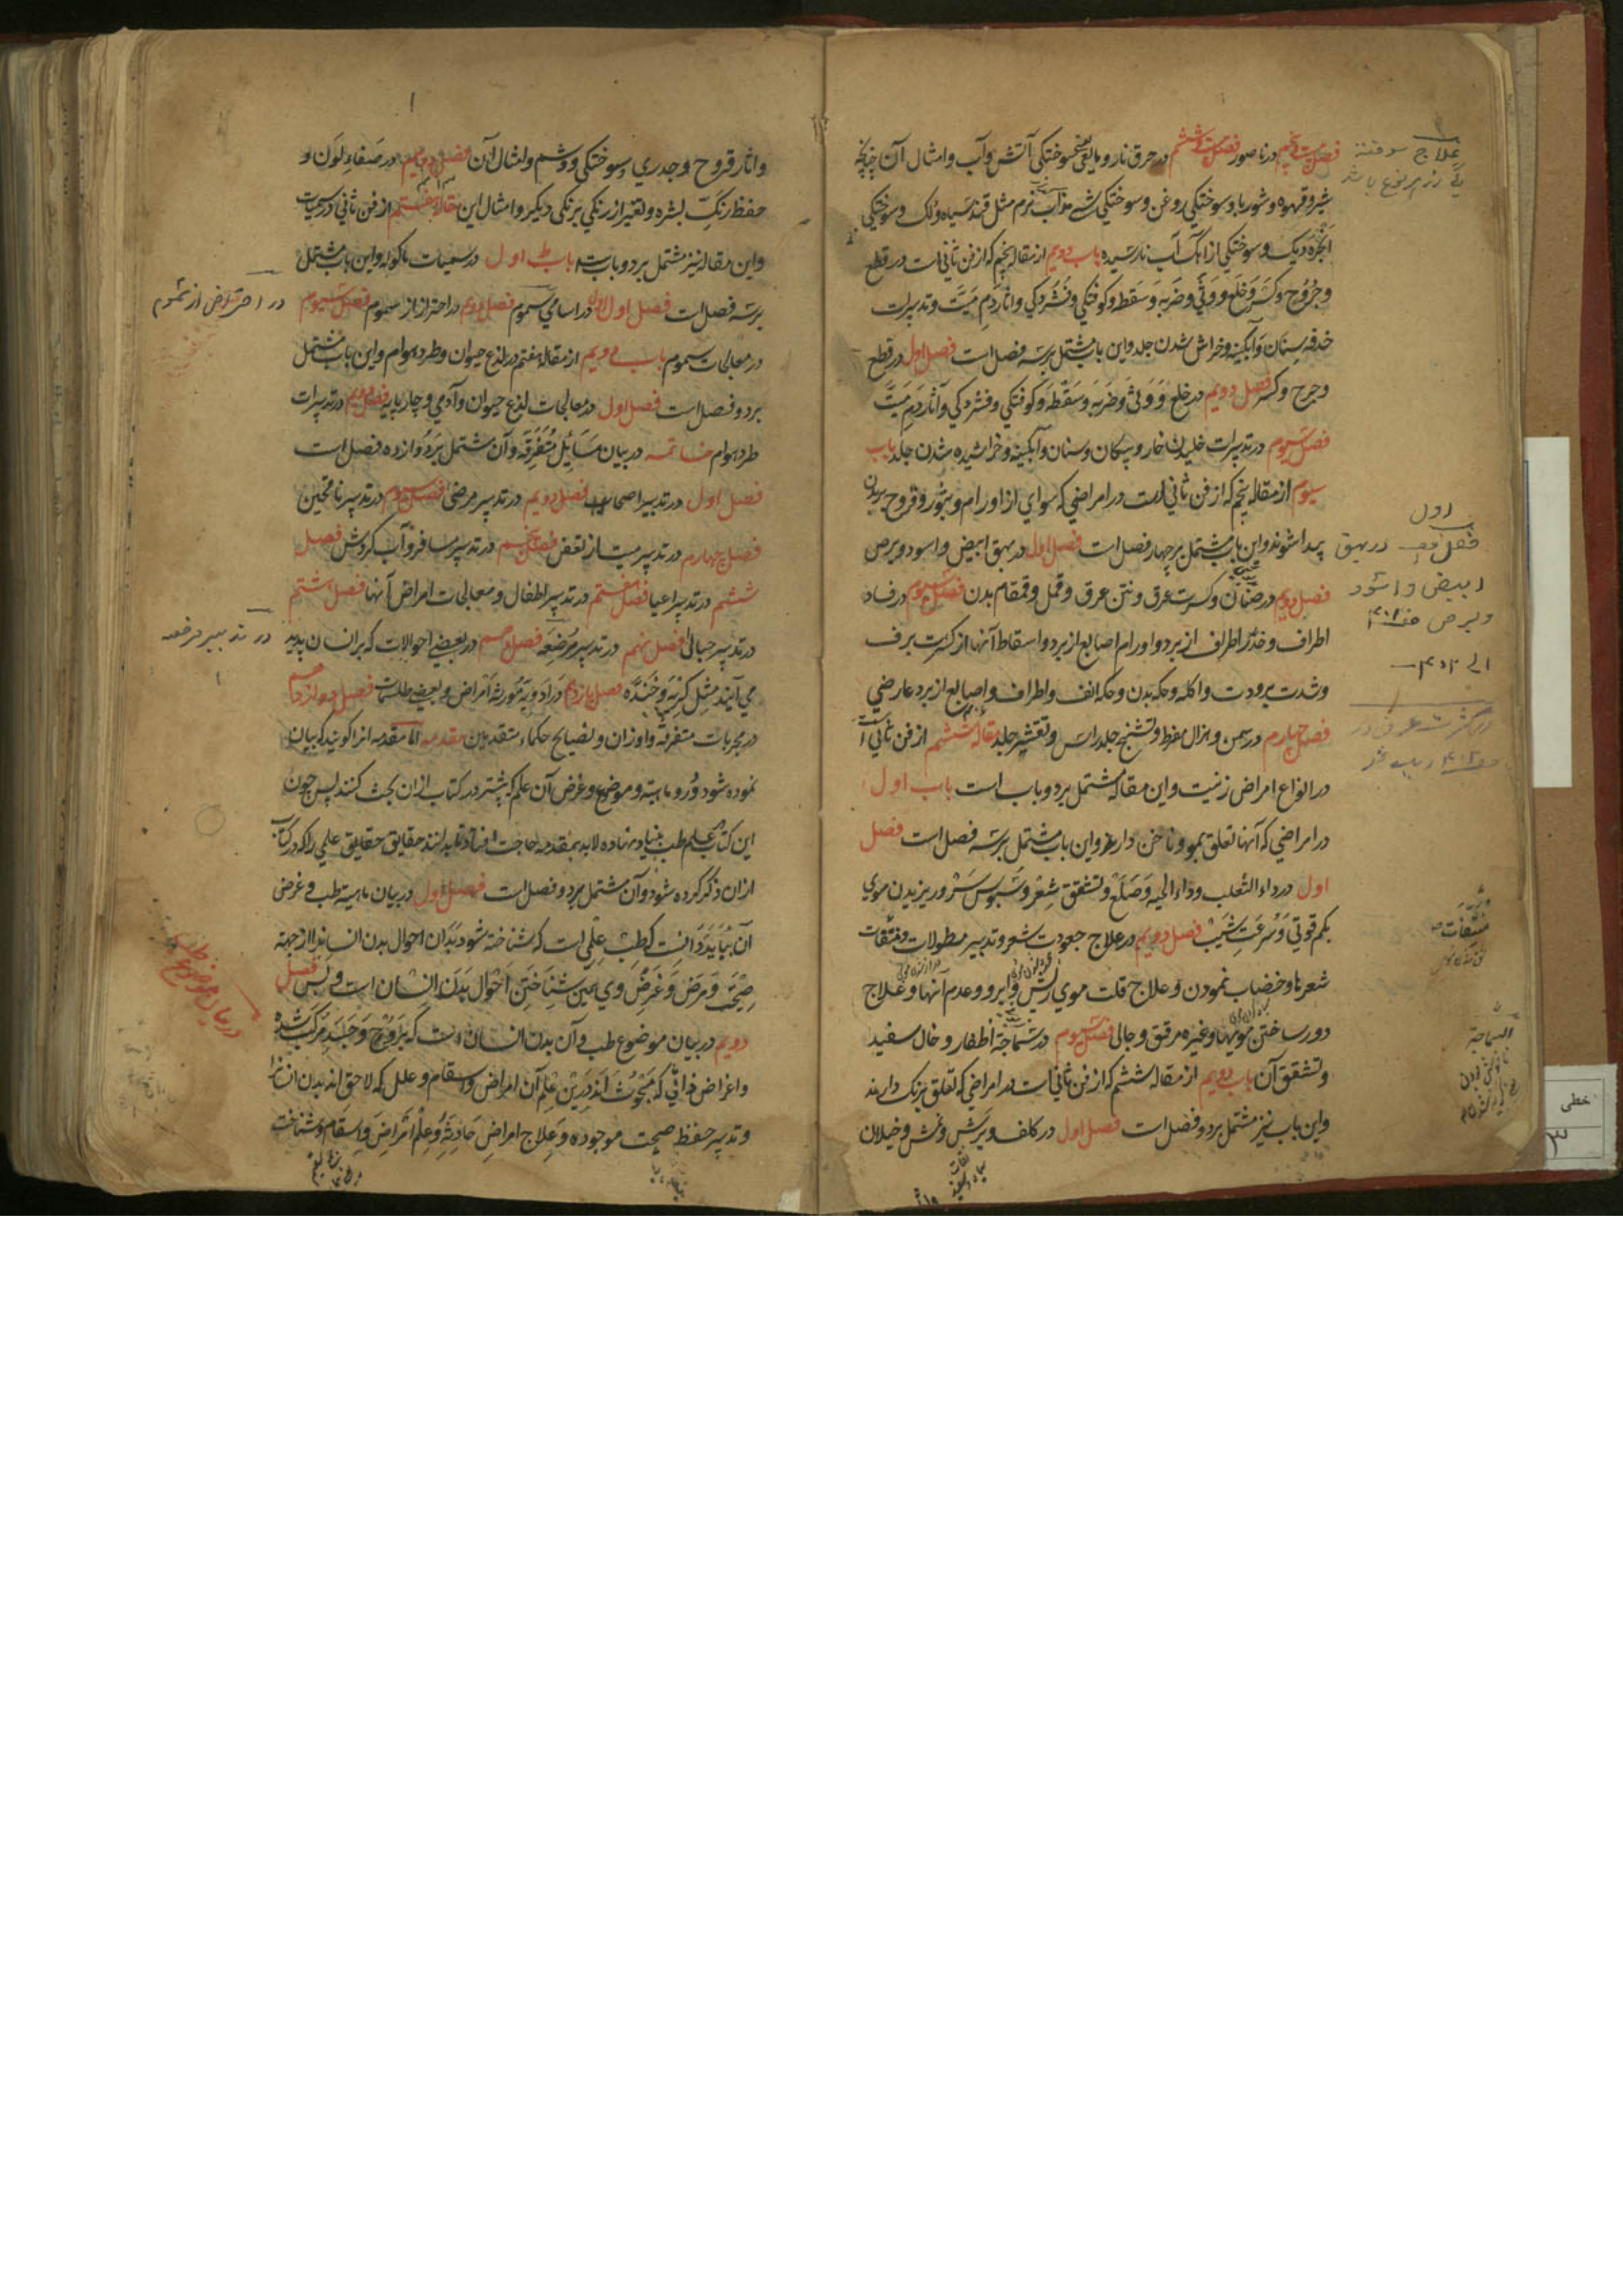 فصل بیست و پنجم در ناصور فصل بیست و ششم در حرق نار و ما یعنی سوختکی آتش و آب و امثال آن چنانچه
شیر و قهوه و شوربا و سوختکی روغن و سوختکی شیء مذآب نرم مثل قند سیاه و لک و سوختکی
ابخره دیک و سوختکی از اهک آب نارسیده باب دویم از مقاله پنجم که از فن ثانی است در قطع
و جروح و کسر و خلع و وثی و ضربه و سقطه و کوفتکی و فشردکی و اثار دم میت و تدبیرات
خدفه سنان و آبکینه و خراش شدن جلد و این باب مشتمل بر سه فصل است فصل اول در قطع
و جرح و کسر فصل دویم در خلع و وثی و ضربه و سقطه و کوفتکی و فشردکی و آثار دم میت
فصل سیوم در تدبیرات خلیدن خار و پیکان و سنان و آبکینه و خراشیده شدن جلد باب
سیوم از مقاله پنجم که از فن ثانی است در امراضی که سوای از اورام و بثور و قروح بر بدن
پیدا شوند و این باب مشتمل بر چهار فصل است فصل اول در بهق ابیض و اسود و برص
فصل دویم در صنان و کثرت عرق و نتن عرق و قمل و قمقام بدن فصل سیوم در فساد
اطراف و خدر اطراف از برد و اورام اصابع از برد و اسقاط آنها از کثرت برف
و شدت برودت و اکله و حکه بدن و حکه انف و اطراف و اصابع از برد عارضی
فصل چهارم در سمن و هزال مفرط و تشنج جلد راس و تقشیر جلد مقاله ششم از فن ثانی است
در انواع امراض زینت و این مقاله مشتمل بر دو باب است باب اول
در امراضی که آنها تعلق بمو و ناخن دارند و این باب مشتمل بر سه فصل است فصل
اول در داء الثعلب و داء الحیه و صلع و تشقق شعر و سبوس سر و ریزیدن موی
بکم قوتی و سرعت شیب فصل دویم در علاج جعودت شعر و تدبیر مطولات و مشقات
شعرها و خضاب نمودن و علاج قلت موی ریش و ابرو و عدم آنها و علاج
دور ساختن مویها و غیره مرقق و جالی فصل سیوم در سماجة اظفار و خال سفید
و تشقق آن باب دویم از مقاله ششم که از فن ثانی است در امراضی که تعلق برنک دارند
و این باب نیز مشتمل بر دو فصل است فصل اول در کلف و برش و نمش و خیلان
علاج سوخته
اول
فصل در بهق
ابیض و اسود
و برص
در کثرت عرق
السماجة
خطی
۳
و اثار قروح و جدری و سوختکی و وشم و امثال آن فصل دویم در صفاء لون و
حفظ رنک بشره و تغیر از رنکی برنکی دیکر و امثال این مقاله هفتم از فن ثانی در سمیات
و این مقاله نیز مشتمل بر دو باب است باب اول در سمیات ماکوله و این باب مشتمل
بر سه فصل است فصل اول در اسامی سموم فصل دویم در احتراز از سموم فصل سیوم
در معالجات سموم باب دویم از مقاله هفتم در لذع حیوان و طرد هوام و این باب مشتمل
بر دو فصل است فصل اول در معالجات لذع حیوان و آدمی و چارپایه فصل دویم در تدبیرات
طرد هوام خاتمه در بیان مسائیل متفرقه و آن مشتمل بر دوازده فصل است
فصل اول در تدبیر اصحا فصل دویم در تدبیر مرضی فصل سیوم در تدبیر ناقهین
فصل چهارم در تدبیر میت از تعفن فصل پنجم در تدبیر مسافر و آب کردش فصل
ششم در تدبیر اعیا فصل هفتم در تدبیر اطفال و معالجات امراض آنها فصل هشتم
در تدبیر حبالی فصل نهم در تدبیر مرضعه فصل دهم در بعضی احوالات که بر انسان پدید
می آیند مثل کریه و خنده فصل یازدهم در ادویه مورثه امراض و بعضی طلسمات فصل دوازدهم
در مجربات متفرقه و اوزان و نصایح حکماء متقدمین مقدمه اما مقدمه انرا کویند که بیان
نموده شود درو ماهیته و موضوع و غرض آن علم که پیشتر در کتاب ازان بحث کنند پس چون
این کتاب بر علم طب بنیاد نهاده لابد بمقدمه حاجت افتاد تا بدانند حقایق علمی را که در کتاب
ازان ذکر کرده شود و آن مشتمل بر دو فصل است فصل اول در بیان ماهیته طب و غرض
آن بباید دانست که طب علمی است که شناخته شود بدان احوال بدن انسان را از جهة
صحت و مرض و غرض وی همین شناختن احوال بدن انسان است و بس فصل
دویم در بیان موضوع طب و آن بدن انسان است که بروح و جسد مرکب شده
و اعراض ذاتی که مبحوث اند درین علم آن امراض و اسقام و علل که لاحق اند بدن انسان را
و تدبیر حفظ صحت موجوده و علاج امراض حادثه و علم اعراض و اسقام و شناخت
در احتراض از سموم
در تدبیر مرضعه
در بیان موضوع طب